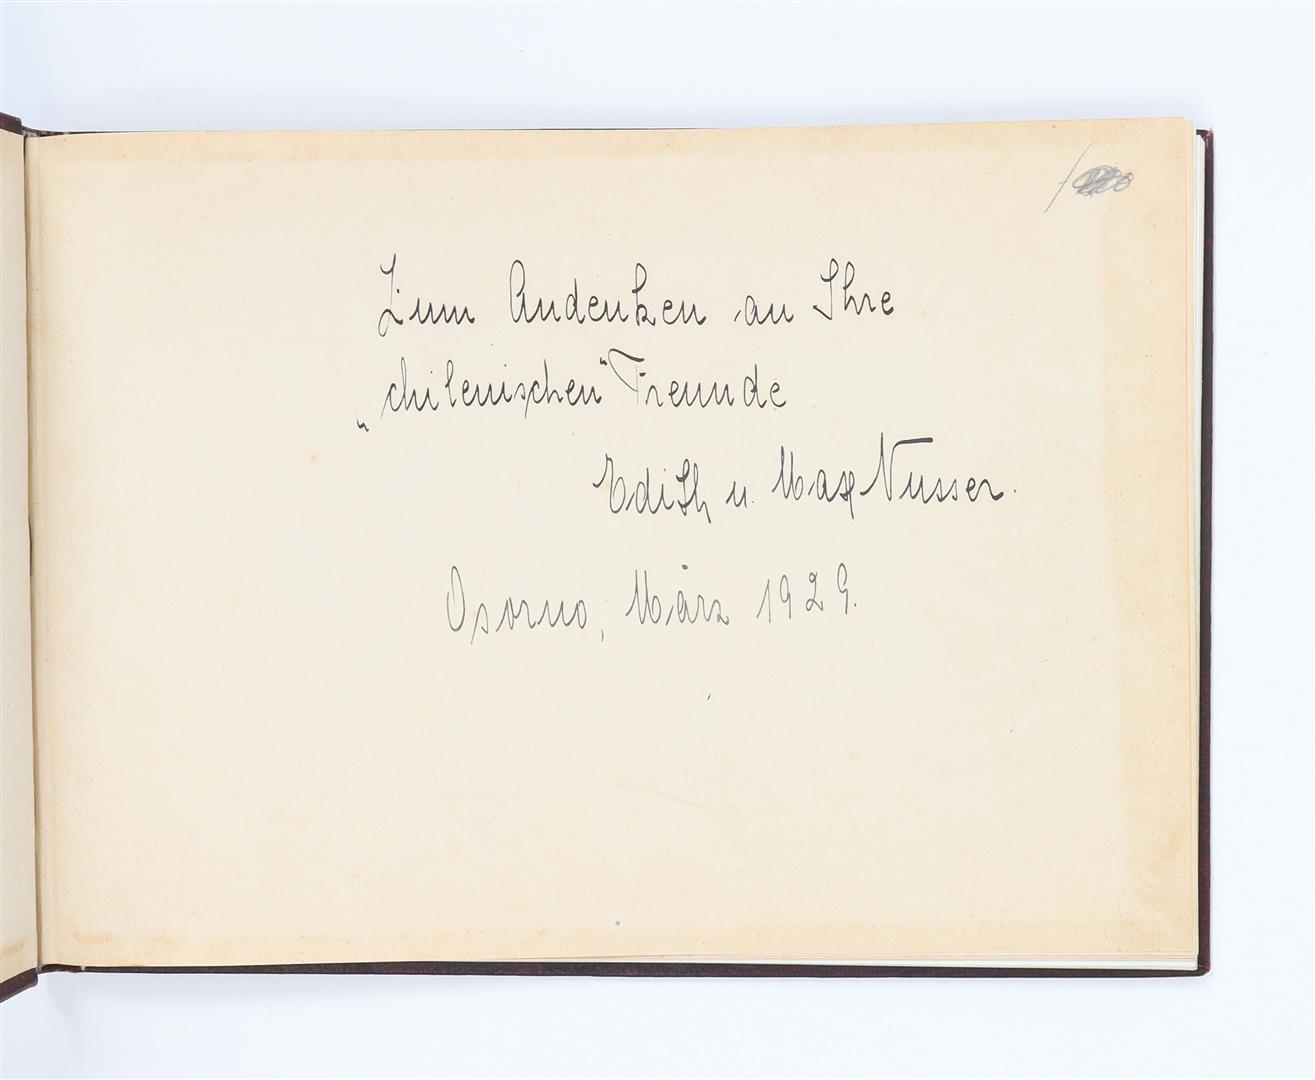 Zum Andenken an Ihre
„chilenischen“ Freunde
Edith u. Max Nusser.
Osorno, März 1929.